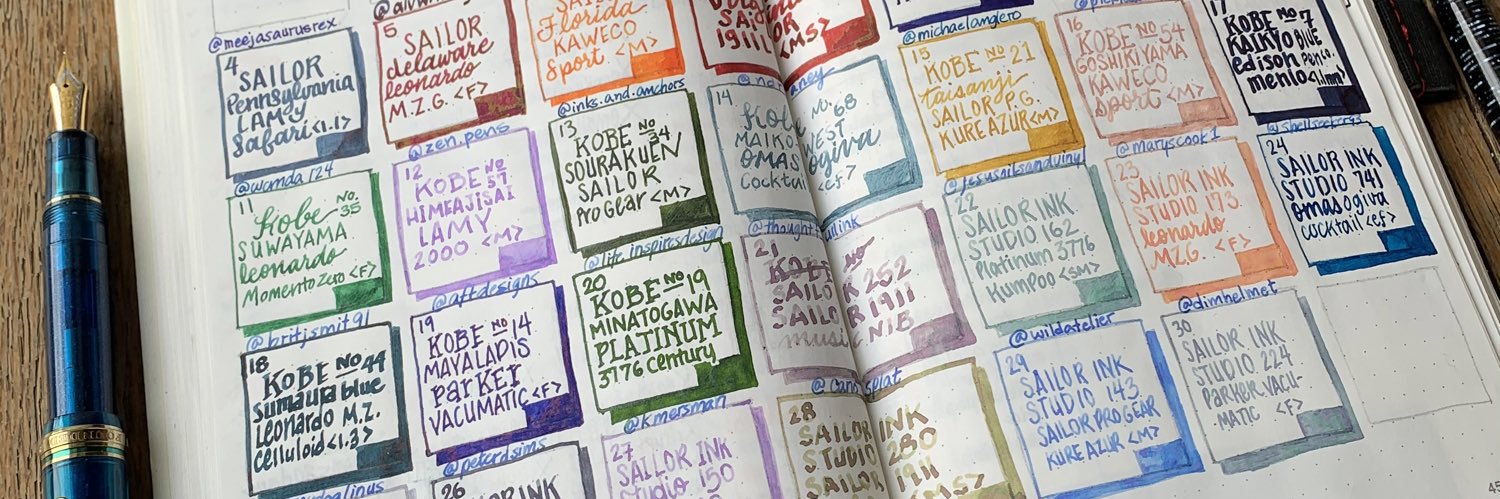 @meejasaurusrex
4
SAILOR
Pennsylvania
LAMY
Safari <1.1>
5
SAILOR
delaware
leonardo
M.Z.G. <F>
Florida
KAWECO
Sport <M>
SAI
1911L
<MS>
@michaelanglero
15
KOBE No 21
taisanji
SAILOR P.G.
KURE AZUR <M>
16
KOBE No 54
GOSHIKIYAMA
KAWECO
Sport <M>
17
KOBE No 7
KAIKYO BLUE
edison Pen co.
menlo <1.1mm>
@wcmda124
11
Kobe No.
35
SUWAYAMA
leonardo
Momento Zero <F>
@zen.pens
12
KOBE No
57
HIMEAJISAI
LAMY
2000 <M>
@inks.and.anchors
13
KOBE No
34
SOURAKUEN
SAILOR
Pro Gear <M>
14
Kobe No. 68
MAIKO
OMAS ogiva
Cocktail <ef>
@jesusnilsandvinyl
22
SAILOR INK
STUDIO 162
Platinum 3776
Kumpoo <SM>
@maryscook1
23
SAILOR INK
STUDIO 173
leonardo
M.Z.G. <F>
24
SAILOR INK
STUDIO 741
omas ogiva
cocktail <ef>
@britjsmit91
18
KOBE No 44
Sumaura blue
Leonardo M.Z.
Celluloid <1.3>
@aftdesigns
19
KOBE No 14
MAYALADIS
parker
VACUMATIC <F>
@life.inspiresdesign
20
KOBE No 19
MINATOGAWA
PLATINUM
3776 Century
21
KOBE No
SAILOR 252
SAILOR 1911
music NIB
@wildatelier
29
SAILOR INK
STUDIO 143
SAILOR PRO GEAR
KURE AZUR <M>
@dimhelmet
30
SAILOR INK
STUDIO 224
PARKER VACU-
MATIC <F>
@peterdsims
26
SAILOR INK
@kmersman
27
SAILOR INK
Studio 150
28
SAILOR INK
STUDIO 280
SAILOR 1911
<MS>